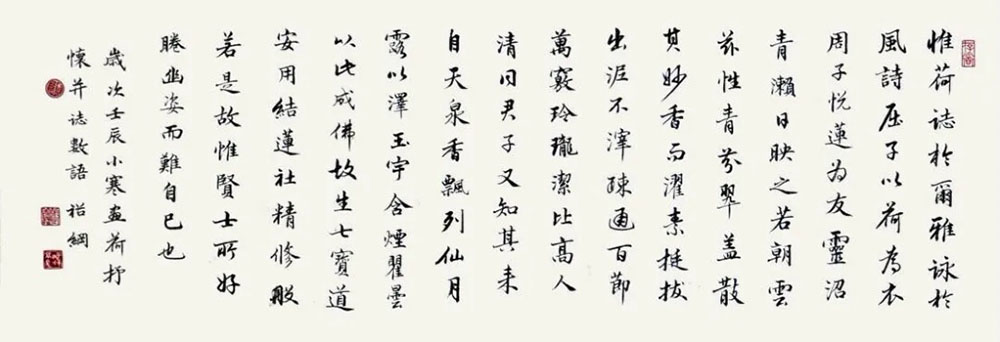 惟荷誌於爾雅詠於
風詩屈子以荷為衣
周子悅蓮為友靈沼
青瀨日映之若朝雲
茲性青芬翠蓋散
其妙香而濯素挺拔
出泥不滓疎通百節
萬竅玲瓏潔比高人
清同君子又知其未
自天泉香飄列仙月
露以澤玉宇含煙瞿曇
以此成佛故生七寶道
安用結蓮社精修般
若是故惟賢士所好
睠幽姿而難自已也
歲次壬辰小寒畫荷抒
懷并誌數語 綱